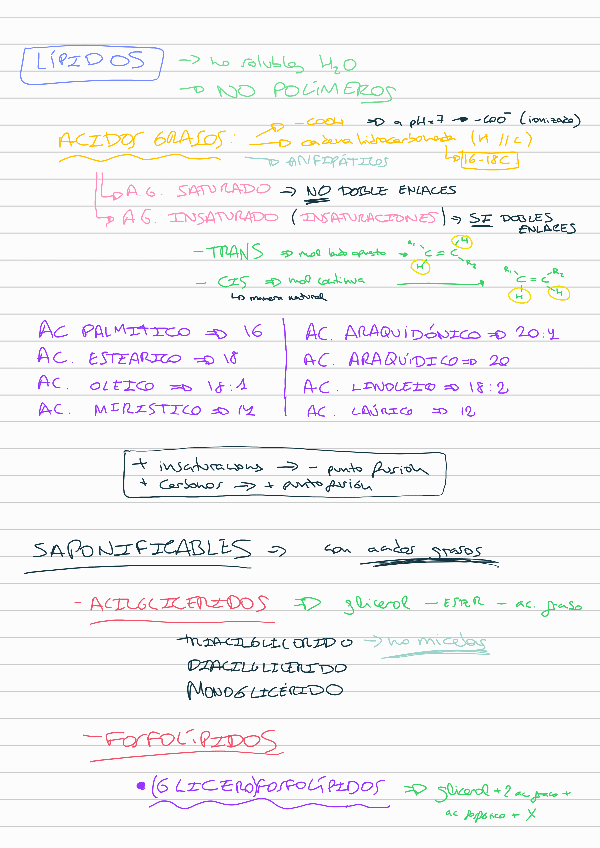 LÍPIDOS → no solubles H₂O
→ NO POLÍMEROS
→ -COOH ⇒ a pH=7 → -COO⁻ (ionizado)
ACIDOS GRASOS: → cadena hidrocarbonada (H // C)
→ ANFIPÁTICOS 16-18C
→ A.G. SATURADO → NO DOBLE ENLACES
→ A.G. INSATURADO (INSATURACIONES) → SI DOBLES
ENLACES
- TRANS ⇒ mol lado opuesto → R₁ H C = C H R₂
- CIS ⇒ mol continua → R₁ H C = C R₂ H
↳ manera natural
AC PALMITICO ⇒ 16 AC. ARAQUIDÓNICO ⇒ 20:4
AC. ESTEARICO ⇒ 18 AC. ARAQUIDICO ⇒ 20
AC. OLEICO ⇒ 18:1 AC. LINOLEICO ⇒ 18:2
AC. MIRISTICO ⇒ 14 AC. LAÚRICO ⇒ 12
+ insaturaciones ⇒ - punto fusión
+ carbonos ⇒ + punto fusión
SAPONIFICABLES ⇒ con acidos grasos
- ACILGLICERIDOS ⇒ glicerol - ESTER - ac. graso
TRIACILGLICERIDO → no micelas
DIACILGLICERIDO
MONOGLICÉRIDO
- FOSFOLÍPIDOS
• (GLICERO)FOSFOLÍPIDOS ⇒ glicerol + 2 ac graso +
ac fosforico + X